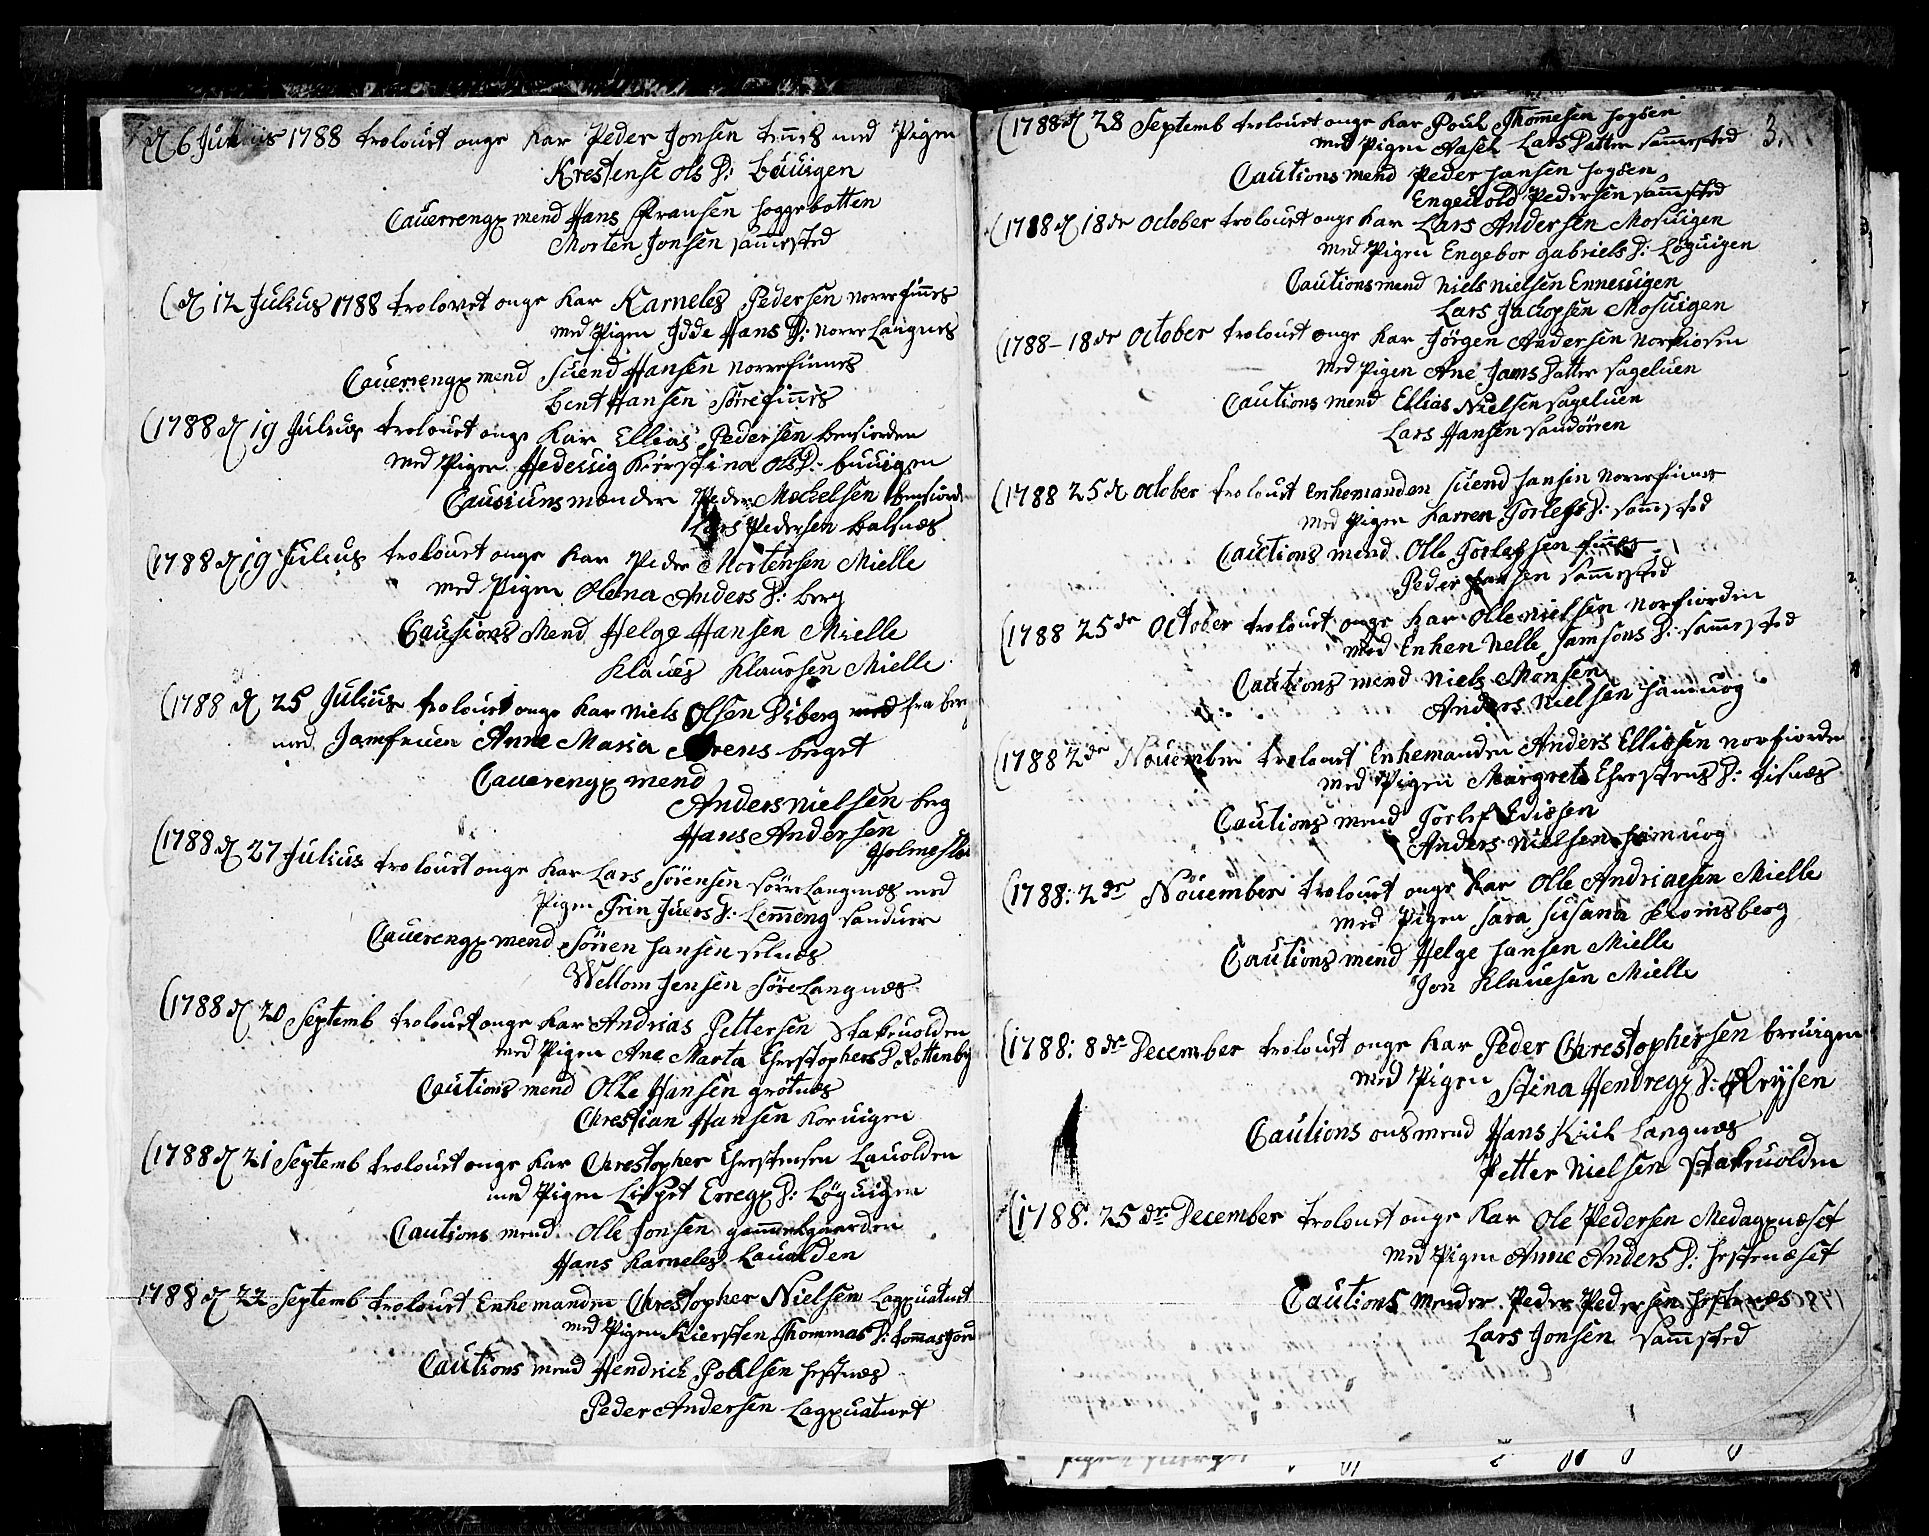 d 6 Junius 1788 trolouet onge kar Peder Jonsen finnes med Pigen
Krestense Ols D: Buuigen
Cauerrengx mend Hans Fransen Hoggebotten
Morten Jonsen sammested
d 12 Julius 1788 trolouet onge kar Karneles Pedersen Norrefinnes
med Pigen Idde Hans D: Norre Langnes
Cauerrengx mend Suend Hansen Norrefinnes
Bent Hansen Sörrefinnes
1788 d 19 Julius trolouet onge kar Ellias Pedersen Bensiorden
med Pigen Hedeuig Kierstina Ols D: buuigen
Causiuns mender Peder Mechelsen bensiord
Lars Pedersen balsnæs
1788 d 19 Julius trolouet onge kar Peder Mortensen Mielle
med Pigen Olena Anders D: berg
Causions Mend Helge Hansen Mielle
Klaues Klauesen Mielle
1788 d 25 Julius trolouet onge kar Niels Olsen Diberg med fra berg
med Jomfruen Anne Maria Arens berget
Cauerengx mend
Anders Nielsen berg
Hans Andersen
Holmeslet
1788 d 27 Julius trolouet onge kar Lars Sörensen Sörre Langnæs med
Pigen Trin Juers D: Lemmeng Sanduer
Cauerengx mend Sörren Hansen Selnæs
Wellom Jensen Söre Langnæs
1788 d 20 Septemb trolouet onge kar Andrias Pettersen Stakuolden
med Pigen Ane Marta Chrestophers D Rottenby
Cautions mend Olle Hansen grötnæs
Chrestian Hansen Koruigen
1788 d 21 Septemb trolouet onge kar Chrestopher Chrestensen Lauolden
med Pigen Lisbet Erregx D: Löguigen
Cautions mend Olle Jonsen gammelgaarden
Hans Karneles: Lauolden
1788 d 22 Septemb trolouet Enkemanden Chrestopher Nielsen Lagxuatnet
med Pigen Kiersten Thommas D: tommasjord
Cautions mend Hendrick Poelsen Hestnæs
Peder Andersen Lagxuatnet
3.
1788 d 28 Septemb trolouet onge kar Poul Thommesen Hogsen
med Pigen Aasel Lars Datter sammested
Cautions mend Peder Hansen Hogsen
Engeuold Pedersen sammsted
1788 d 18de October trolouet onge kar Lars Andersen Mosuigen
med Pigen Engebor Gabriels D: Löguigen
Cautions mend Niels Nielsen Enneruigen
Lars Jackopsen Mosuigen
1788 - 18de October trolouet onge kar Jörgen Andersen Norkiosen
med Pigen Ane Jams Datter Sageluen
Cautions mend Ellias Nielsen Sageluen
Lars Hansen Sandören
1788 25 d October trolouet Enkemanden Suend Hansen Norrefinnes
med Pigen Karren Torlefs D: sammested
Cautions mend Olle Torlefsen finnes
Peder Hansen sammested
1788 25de October trolouet onge kar Olle Nielsen Norfiorden
med Enken Nelle Samsons D: sammested
Cautions mend Niels Monsen
Anders Nielsen Hamuog
1788 2de Nouember trolouet Enkemanden Anders Elliesen Norfiorden
med Pigen Margrete Chrestens D: tisnæs
Cautions mend Torlef Edissen
Anders Nielsen Hamuog
1788: 2de Nöuember trolouet onge kar Olle Andriaesen Mielle
med Pigen Sara Susana Kromsberg
Cautions mend Helge Hansen Mielle
Jon Klauesen Mielle
1788: 8de December trolouet onge kar Peder Chrestophersen breuigen
med Pigen Stina Hendregx D: Reysen
Cautions ons mend Hans Kiil Langnæs
Petter Nielsen Stakuolden
1788. 25de December trolouet onge kar Ole Pedersen Medagxnæset
med Pigen Anne Anders D: Hestenæset
Cautions mender Peder Pedersen Hestenæs
Lars Jonsen sammsted